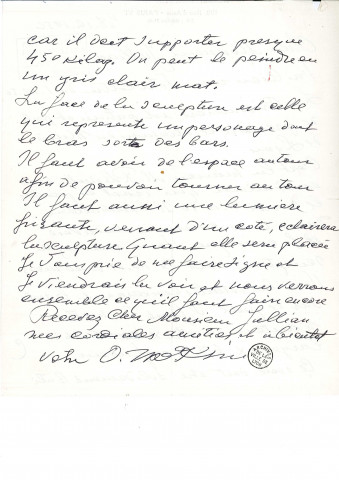 car il doit supporter presque
450 kilog. On peut le peindre en
un gris clair mat.
La face de la sculpture est celle
qui represente un personage dont
le bras sorte des bars.
Il faut avoir de l'espace autour
afin de pouvoir tourner autour
Il faut aussi une lumiere
frisante, venant d'un coté, eclairera
la sculpture Quant elle sera placée
Je vous prie de me faire signe et
je viendrais la voir et nous verrons
ensemble ce qu'il faut faire encore
Recevez Cher Monsieur Jullian
mes cordiales amitiés, et à bientot
votre O.
ARCHIVES
VILLE DE
LYON